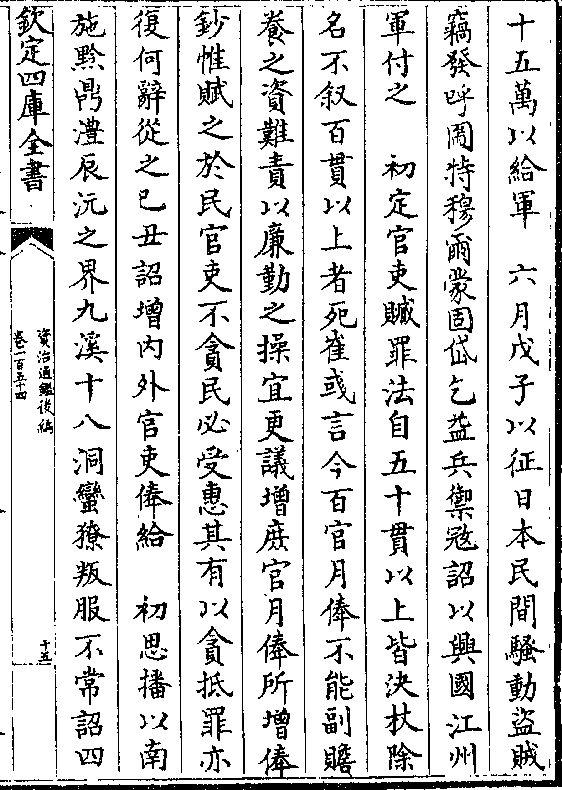 十五萬以給軍　六月戊子以征日本民間騷動盜賊
竊發呼圖特穆爾蒙固岱乞益兵禦寇詔以興國江州
軍付之　初定官吏贓罪法自五十貫以上皆決杖除
名不叙百貫以上者死崔彧言今百官月俸不能副贍
養之資難責以廉勤之操宜更議增庶官月俸所增俸
鈔惟賦之於民官吏不貪民必受惠其有以貪抵罪亦
復何辭從之已丑詔增內外官吏俸給　初思播以南
施黔鼎澧辰沅之界九溪十八洞蠻獠叛服不常詔四
欽定四庫全書
資治通鑑後編
卷一百五十四
十五